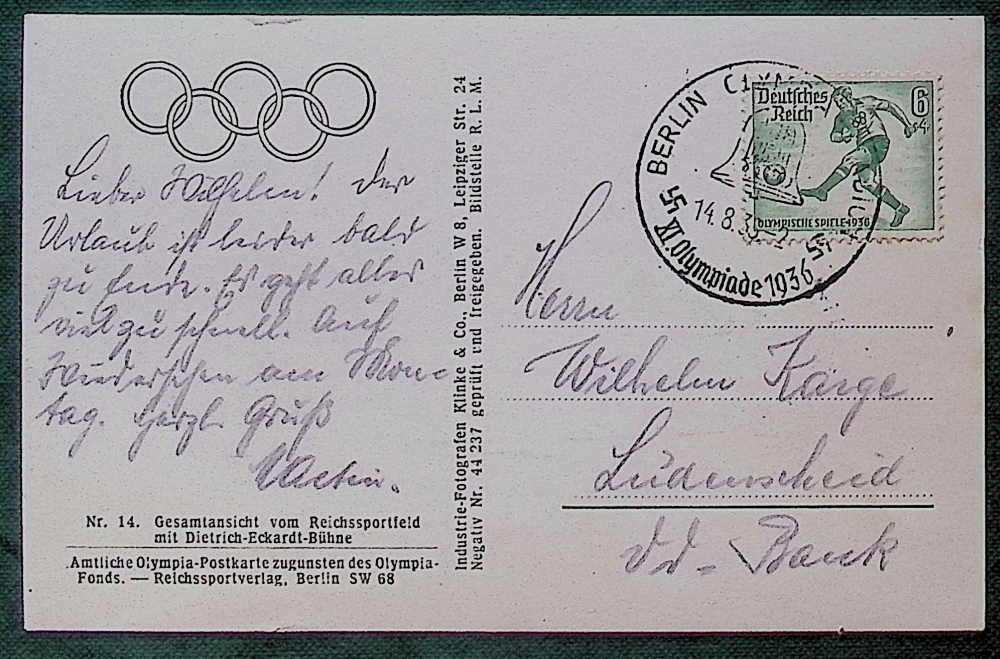 Lieber Wilhelm! Der
Urlaub ist leider bald
zu Ende. Es geht alles
viel zu schnell. Auf
Wiedersehen am Mon-
tag. Herzl. Gruß
Nr. 14. Gesamtansicht vom Reichssportfeld
mit Dietrich-Eckardt-Bühne
Amtliche Olympia-Postkarte zugunsten des Olympia-
Fonds. — Reichssportverlag, Berlin SW 68
Industrie-Fotografen Klinke & Co., Berlin W 8, Leipziger Str. 24
Negativ Nr. 44 237 geprüft und freigegeben. Bildstelle R. L. M.
BERLIN
14.8.
XI. Olympiade 1936
Deutsches
Reich
6
+4
OLYMPISCHE SPIELE 1936
Herrn
Wilhelm Karge
Lüdenscheid
Bank